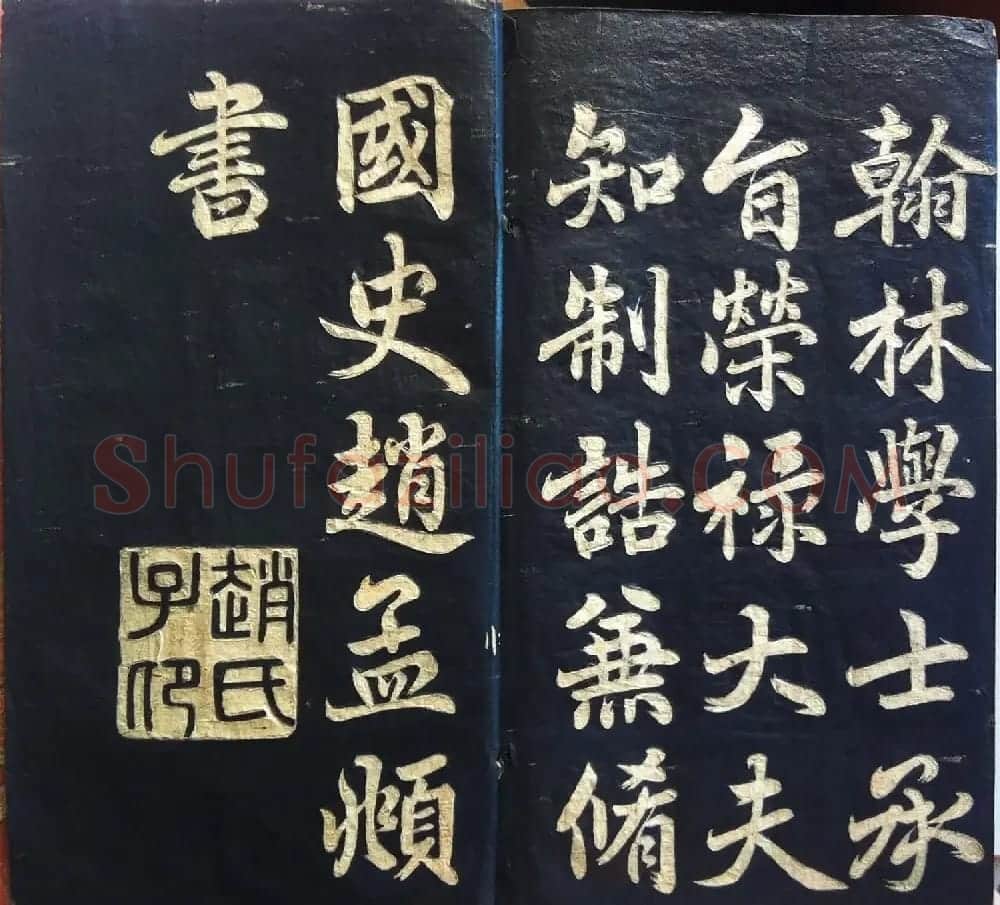 翰林學士承
旨榮祿大夫
知制誥兼脩
國史趙孟頫
書
趙氏
子印
Shufajiliao.COM